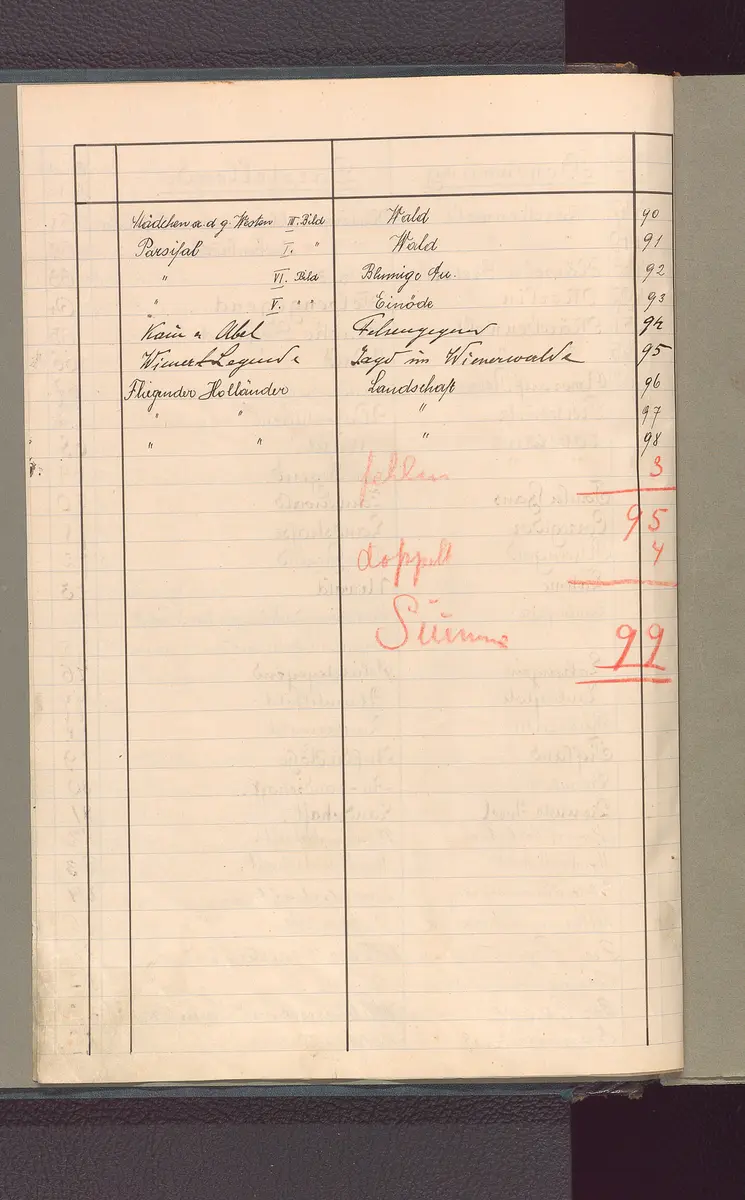 Mädchen a. d. g. Westen III. Bild Wald 90
Parsifal I. " Wald 91
" VI. Bild Blumige Au. 92
" V. " Einöde 93
Kain u Abel Felsengegend 94
Wiener Legende Jagd im Wienerwalde 95
Fliegender Holländer Landschaft 96
" " " 97
" " " 98
fehlen 3
95
doppelt 4
Summe 99